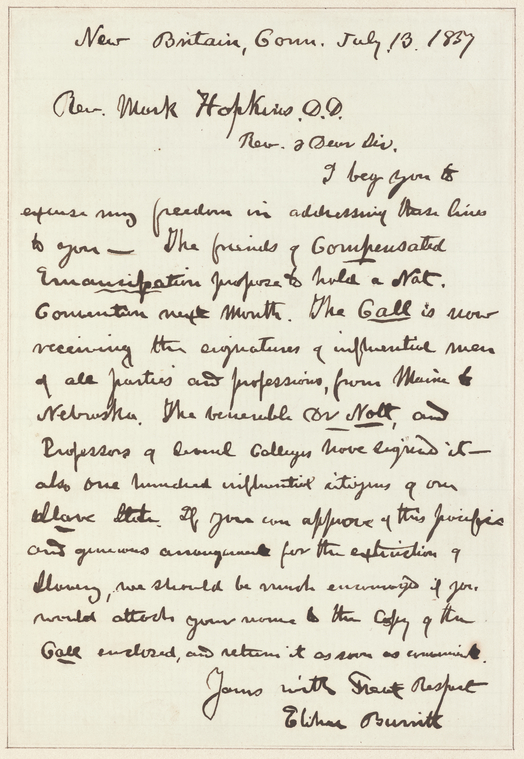 New Britain, Conn. July. 13. 1857
Rev. Mark Hopkins. D.D.
Rev. & Dear Sir.
I beg you to
excuse my freedom in addressing these lines
to you — The friends of Compensated
Emancipation propose to hold a Nat.
Convention next month. The Call is now
receiving the signatures of influential men
of all parties and professions, from Maine to
Nebraska. The venerable Dr Nott, and
Professors of several Colleges have signed it —
also one hundred influential citizens of one
Slave State. If you can approve of this pacific
and generous arrangement for the extinction of
Slavery, we should be much encouraged if you
would attach your name to the Copy of the
Call enclosed, and return it as soon as convenient.
Yours with Great Respect
Elihu Burritt